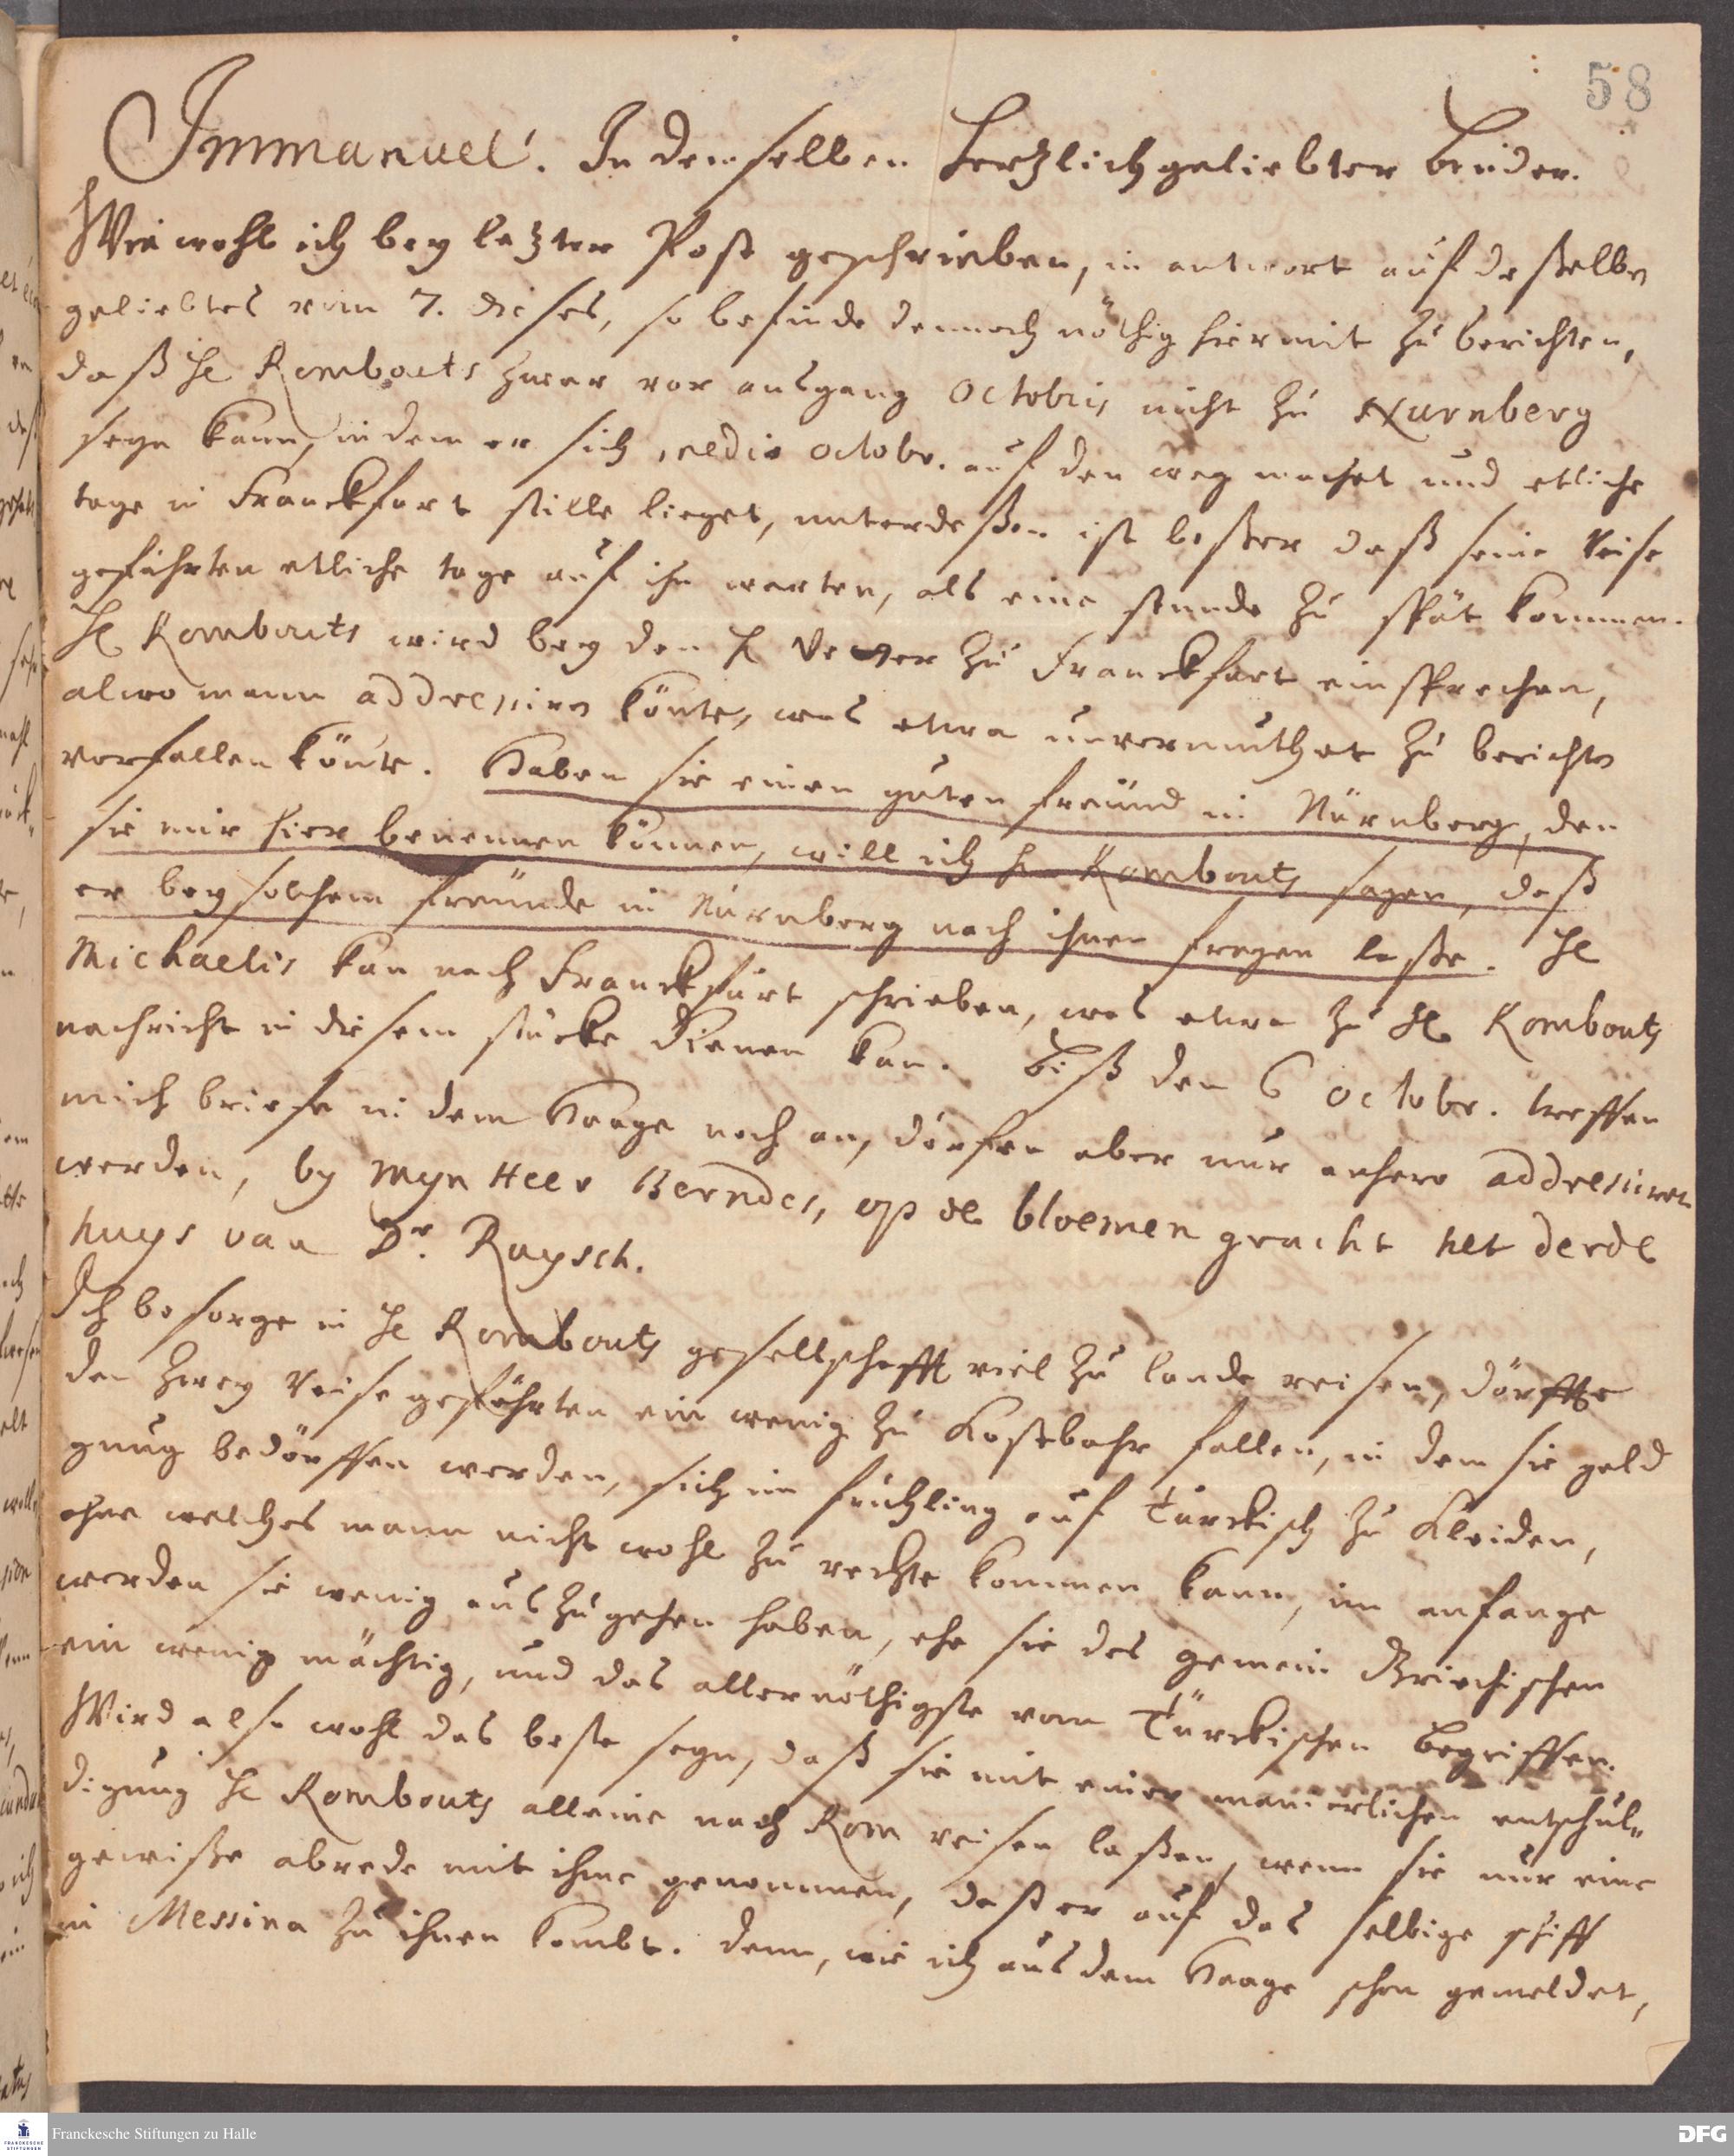 58
Immanuel. In demselben Hertzlich geliebter bruder.
Wie wohl ich bey letzter Post geschrieben, in antwort auf desselben
geliebtes vom 7. dieses, so befinde dennoch nöthig hiermit zu berichten,
daß He Rombouts zwar vor ausgang Octobris nicht zu Nurnberg
seyn kann, indem er sich medio octobr. auf den weg machet und etliche
tage in Franckfurt stille lieget, unterdeßen ist beßer daß seine Reise
gefährten etliche tage auf ihn warten, als eine stunde zu spät kommen.
He Rombouts wird bey den H zu Franckfurt einsprechen,
alwo mann addressiren könte, was etwa unvermuthet zu berichten
vorfallen könte. Haben sie einen guten freund in Nürnberg, den
sie mir hier benennen können, will ich He Rombouts sagen, daß
er bey solchem freunde in Nürnberg nach ihnen fragen laße. He
Michaelis kan nach Franckfurt schrieben, was etwa zu He Rombouts
nachricht in diesem stücke dienen kan. Biß den 6 octobr. treffen
mich briefe in dem Haage noch an, dörfen aber nur anhero addressiret
werden, by Myn Heer Berndes, op de bloemen gracht het derde
huys van Dr. Ruysch.
Ich besorge in He Rombouts gesellschafft viel zu lande reisen, dörffte
den zwey Reise gefährten ein wenig zu kostbahr fallen, in dem sie geld
gnug bedörffen werden, sich im frühling auf Türckisch zu kleiden,
ohne welches mann nicht wohl zu rechte kommen kann, im anfange
werden sie wenig auszugehen haben, ehe sie des gemein Griechischen
ein wenig mächtig, und das allernöthigste vom Türckischen begriffen.
Wird also wohl das beste seyn, daß sie mit einer manierlichen entschul-
digung He Rombouts alleine nach Rom reisen laßen, wenn sie nur eine
gewiße abrede mit ihme genommen, daß er auf das selbige schiff
in Messina zu ihnen kombt. denn, wie ich aus dem Haage schon gemeldet,
Franckesche Stiftungen zu Halle
DFG